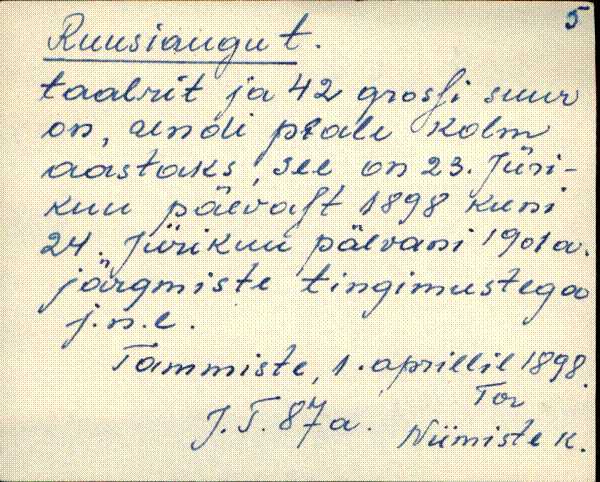 5
Ruusiaugu t.
taalrit ja 42 grossi suur
on, rendi peale kolm
aastaks, see on 23. Jüri-
kuu päevast 1898 kuni
24. Jürikuu päevani 1901 a.
järgmiste tingimustega
j.n.e.
Tammiste, 1. aprillil 1898.
J. T. 87 a.
Tor
Niimiste k.